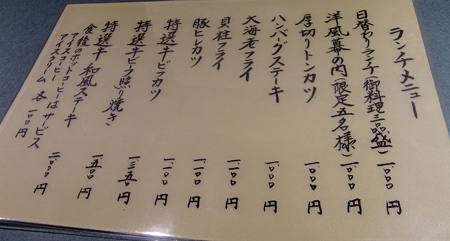 ランチメニュー
日替わりランチ(御料理三品盛) 一,〇〇〇円
洋風幕の内(限定五名様) 一,〇〇〇円
厚切りトンカツ 一,〇〇〇円
ハンバーグステーキ 一,〇〇〇円
大海老フライ
貝柱フライ 一,一〇〇円
豚ヒレカツ 一,一〇〇円
特選牛ヒラカツ 一,一〇〇円
特選牛ヒラ照り焼き 一,三五〇円
特選牛和風ステーキ 一,五〇〇円
食後のホットコーヒーはサービス 二,〇〇〇円
アイスコーヒー
アイスクリーム 各一〇〇円